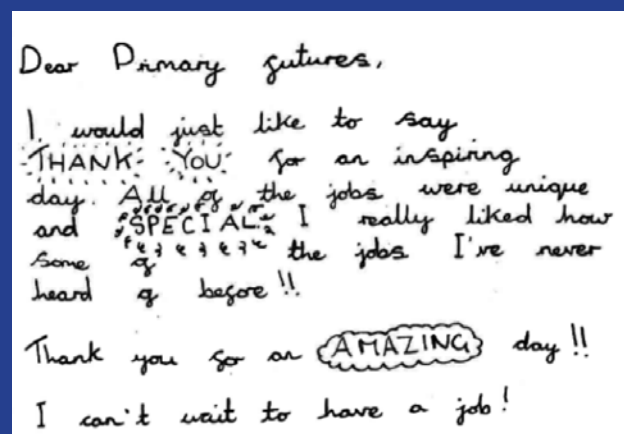 Dear Primary futures,
I would just like to say
THANK YOU for an inspiring
day. All of the jobs were unique
and SPECIAL I really liked how
some of the jobs I've never
heard of before!!
Thank you for an AMAZING day!!
I can't wait to have a job!